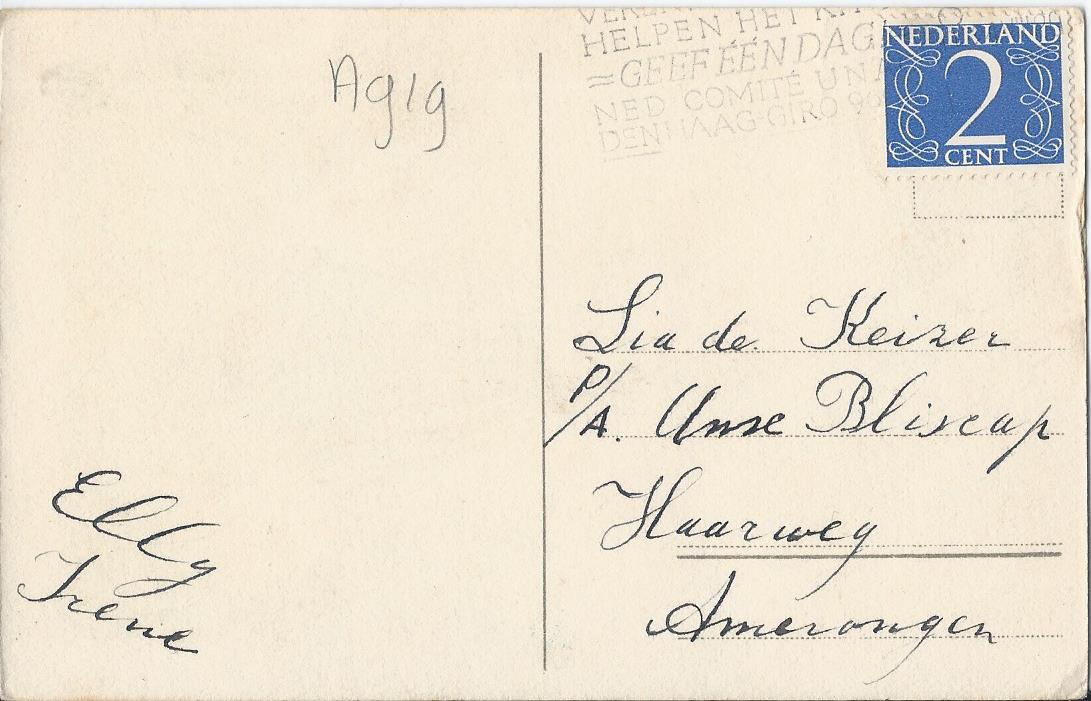 Ag1g
HELPEN HET
=GEEF ÉÉN DAG
NED COMITÉ
DEN HAAG-GIRO
NEDERLAND
2
CENT
Lia de Keizer
P/A. Anse Bliscap
Haarweg
Amerongen
Elly
Irene